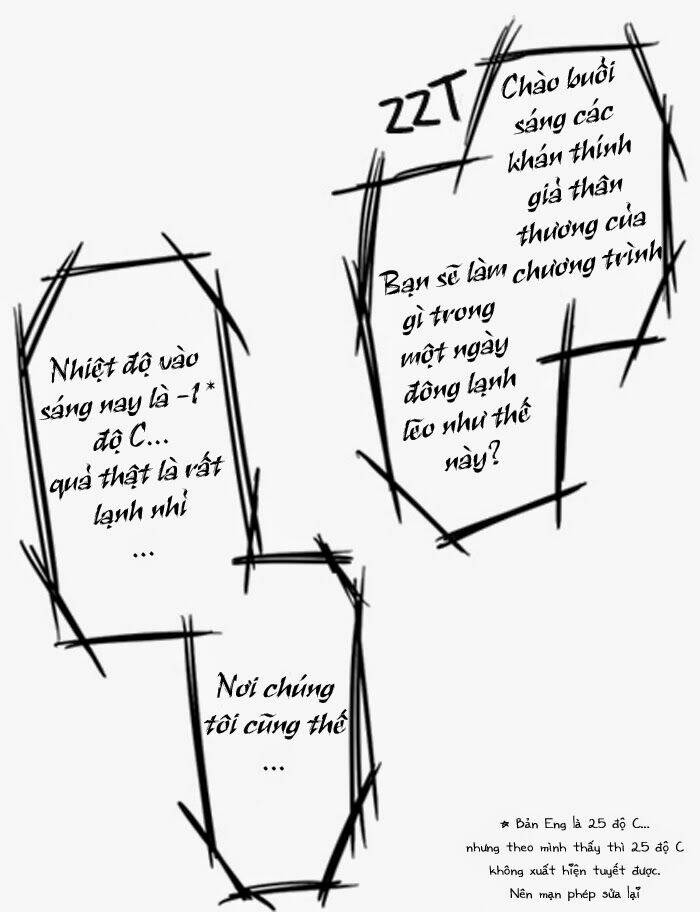 ZZT
Chào buổi
sáng các
khán thính
giả thân
thương của
chương trình
Bạn sẽ làm
gì trong
một ngày
đông lạnh
lẽo như thế
này?
Nhiệt độ vào
sáng nay là -1*
độ C...
quả thật là rất
lạnh nhỉ
...
Nơi chúng
tôi cũng thế
...
* Bản Eng là 25 độ C...
nhưng theo mình thấy thì 25 độ C
không xuất hiện tuyết được.
Nên mạn phép sửa lại